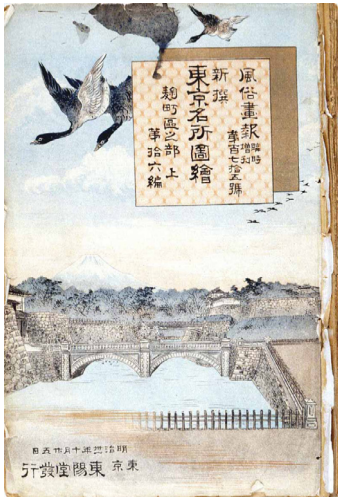 風俗畫報
臨時增刊
第百七拾五號
新撰
東京名所圖繪
麹町區之部 上
第拾六編
明治卅一年十月廿五日
東京 東陽堂發行